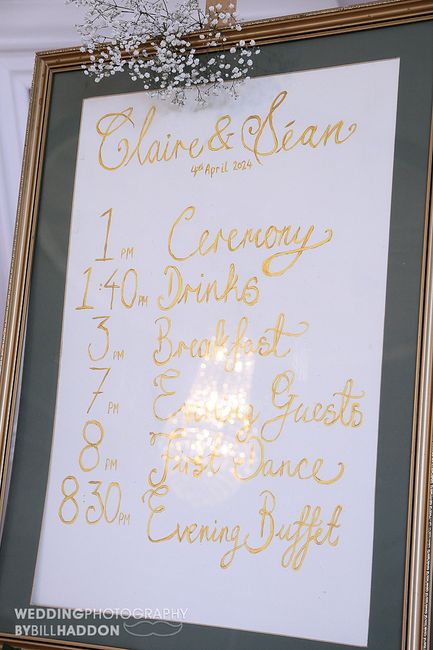 Claire & Séan
4th April 2024
1 PM Ceremony
1:40 PM Drinks
3 PM Breakfast
7 PM Evening Guests
8 PM First Dance
8:30 PM Evening Buffet
WEDDINGPHOTOGRAPHY
BYBILLHADDON